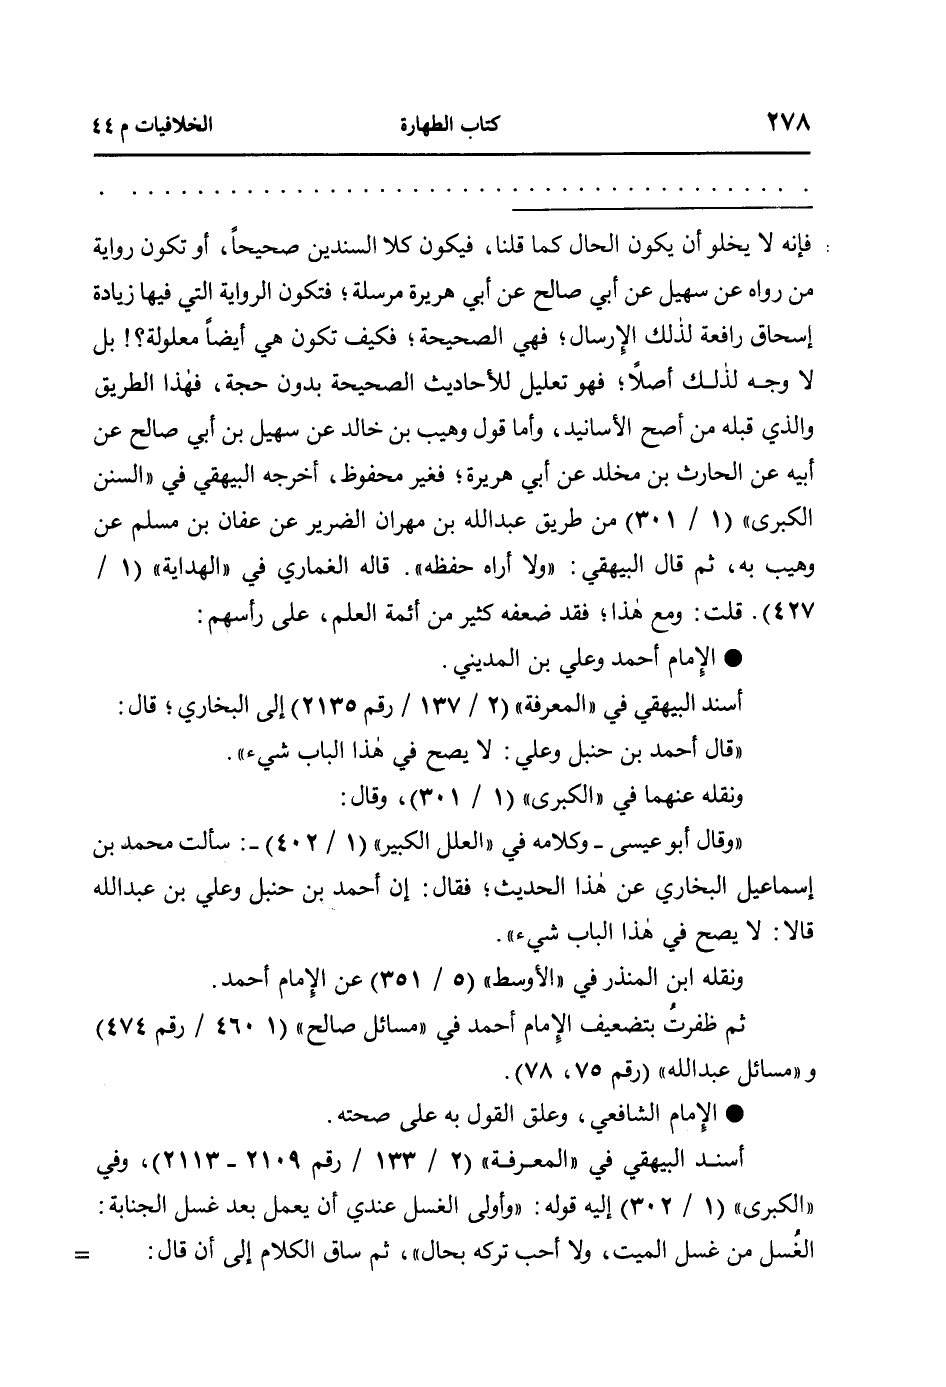 ٢٧٨ كتاب الطهارة الخلافيات م ٤٤
: فإنه لا يخلو أن يكون الحال كما قلنا، فيكون كلا السندين صحيحاً، أو تكون رواية
من رواه عن سهيل عن أبي صالح عن أبي هريرة مرسلة؛ فتكون الرواية التي فيها زيادة
إسحاق رافعة لذٰلك الإرسال؛ فهي الصحيحة؛ فكيف تكون هي أيضاً معلولة؟! بل
لا وجـه لذٰلـك أصلًا؛ فهو تعليل للأحاديث الصحيحة بدون حجة، فهٰذا الطريق
والذي قبله من أصح الأسانيد، وأما قول وهيب بن خالد عن سهيل بن أبي صالح عن
أبيه عن الحارث بن مخلد عن أبي هريرة؛ فغير محفوظ، أخرجه البيهقي في «السنن
الكبرى» (١ / ٣٠١) من طريق عبدالله بن مهران الضرير عن عفان بن مسلم عن
وهيب به، ثم قال البيهقي: «ولا أراه حفظه». قاله الغماري في «الهداية» (١ /
٤٢٧). قلت: ومع هٰذا؛ فقد ضعفه كثير من أئمة العلم، على رأسهم:
● الإمام أحمد وعلي بن المديني.
أسند البيهقي في «المعرفة» (٢ / ١٣٧ / رقم ٢١٣٥) إلى البخاري؛ قال:
«قال أحمد بن حنبل وعلي: لا يصح في هٰذا الباب شيء».
ونقله عنهما في «الكبرى» (١ / ٣٠١)، وقال:
«وقال أبو عيسى ـ وكلامه في «العلل الكبير» (١ / ٤٠٢) ـ: سألت محمد بن
إسماعيل البخاري عن هٰذا الحديث؛ فقال: إن أحمد بن حنبل وعلي بن عبدالله
قالا: لا يصح في هٰذا الباب شيء».
ونقله ابن المنذر في «الأوسط» (٥ / ٣٥١) عن الإمام أحمد.
ثم ظفرتُ بتضعيف الإمام أحمد في «مسائل صالح» (١ ٤٦٠ / رقم ٤٧٤)
و «مسائل عبدالله» (رقم ٧٥، ٧٨).
● الإمام الشافعي، وعلق القول به على صحته.
أسنـد البيهقي في «المعـرفـة» (٢ / ١٣٣ / رقم ٢١٠٩ ـ ٢١١٣)، وفي
«الكبرى» (١ / ٣٠٢) إليه قوله: «وأولى الغسل عندي أن يعمل بعد غسل الجنابة:
الغُسل من غسل الميت، ولا أحب تركه بحال»، ثم ساق الكلام إلى أن قال: =